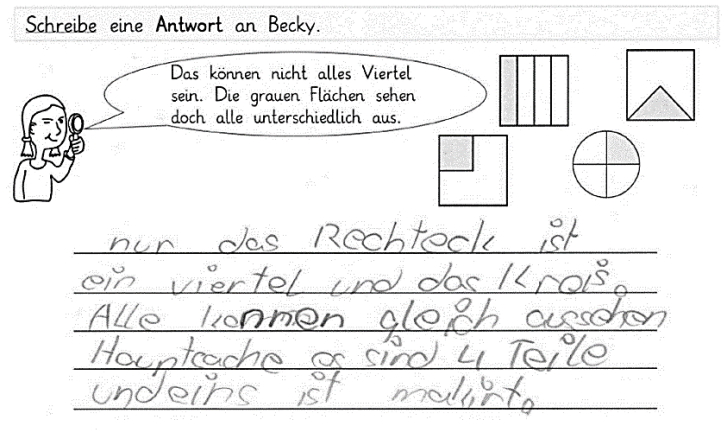 Schreibe eine Antwort an Becky.
Das können nicht alles Viertel
sein. Die grauen Flächen sehen
doch alle unterschiedlich aus.
nur das Rechteck ist
ein viertel und das Kreis.
Alle konnnen gleich aussehen
Hauptcache es sind 4 Teile
undeins ist malirt.